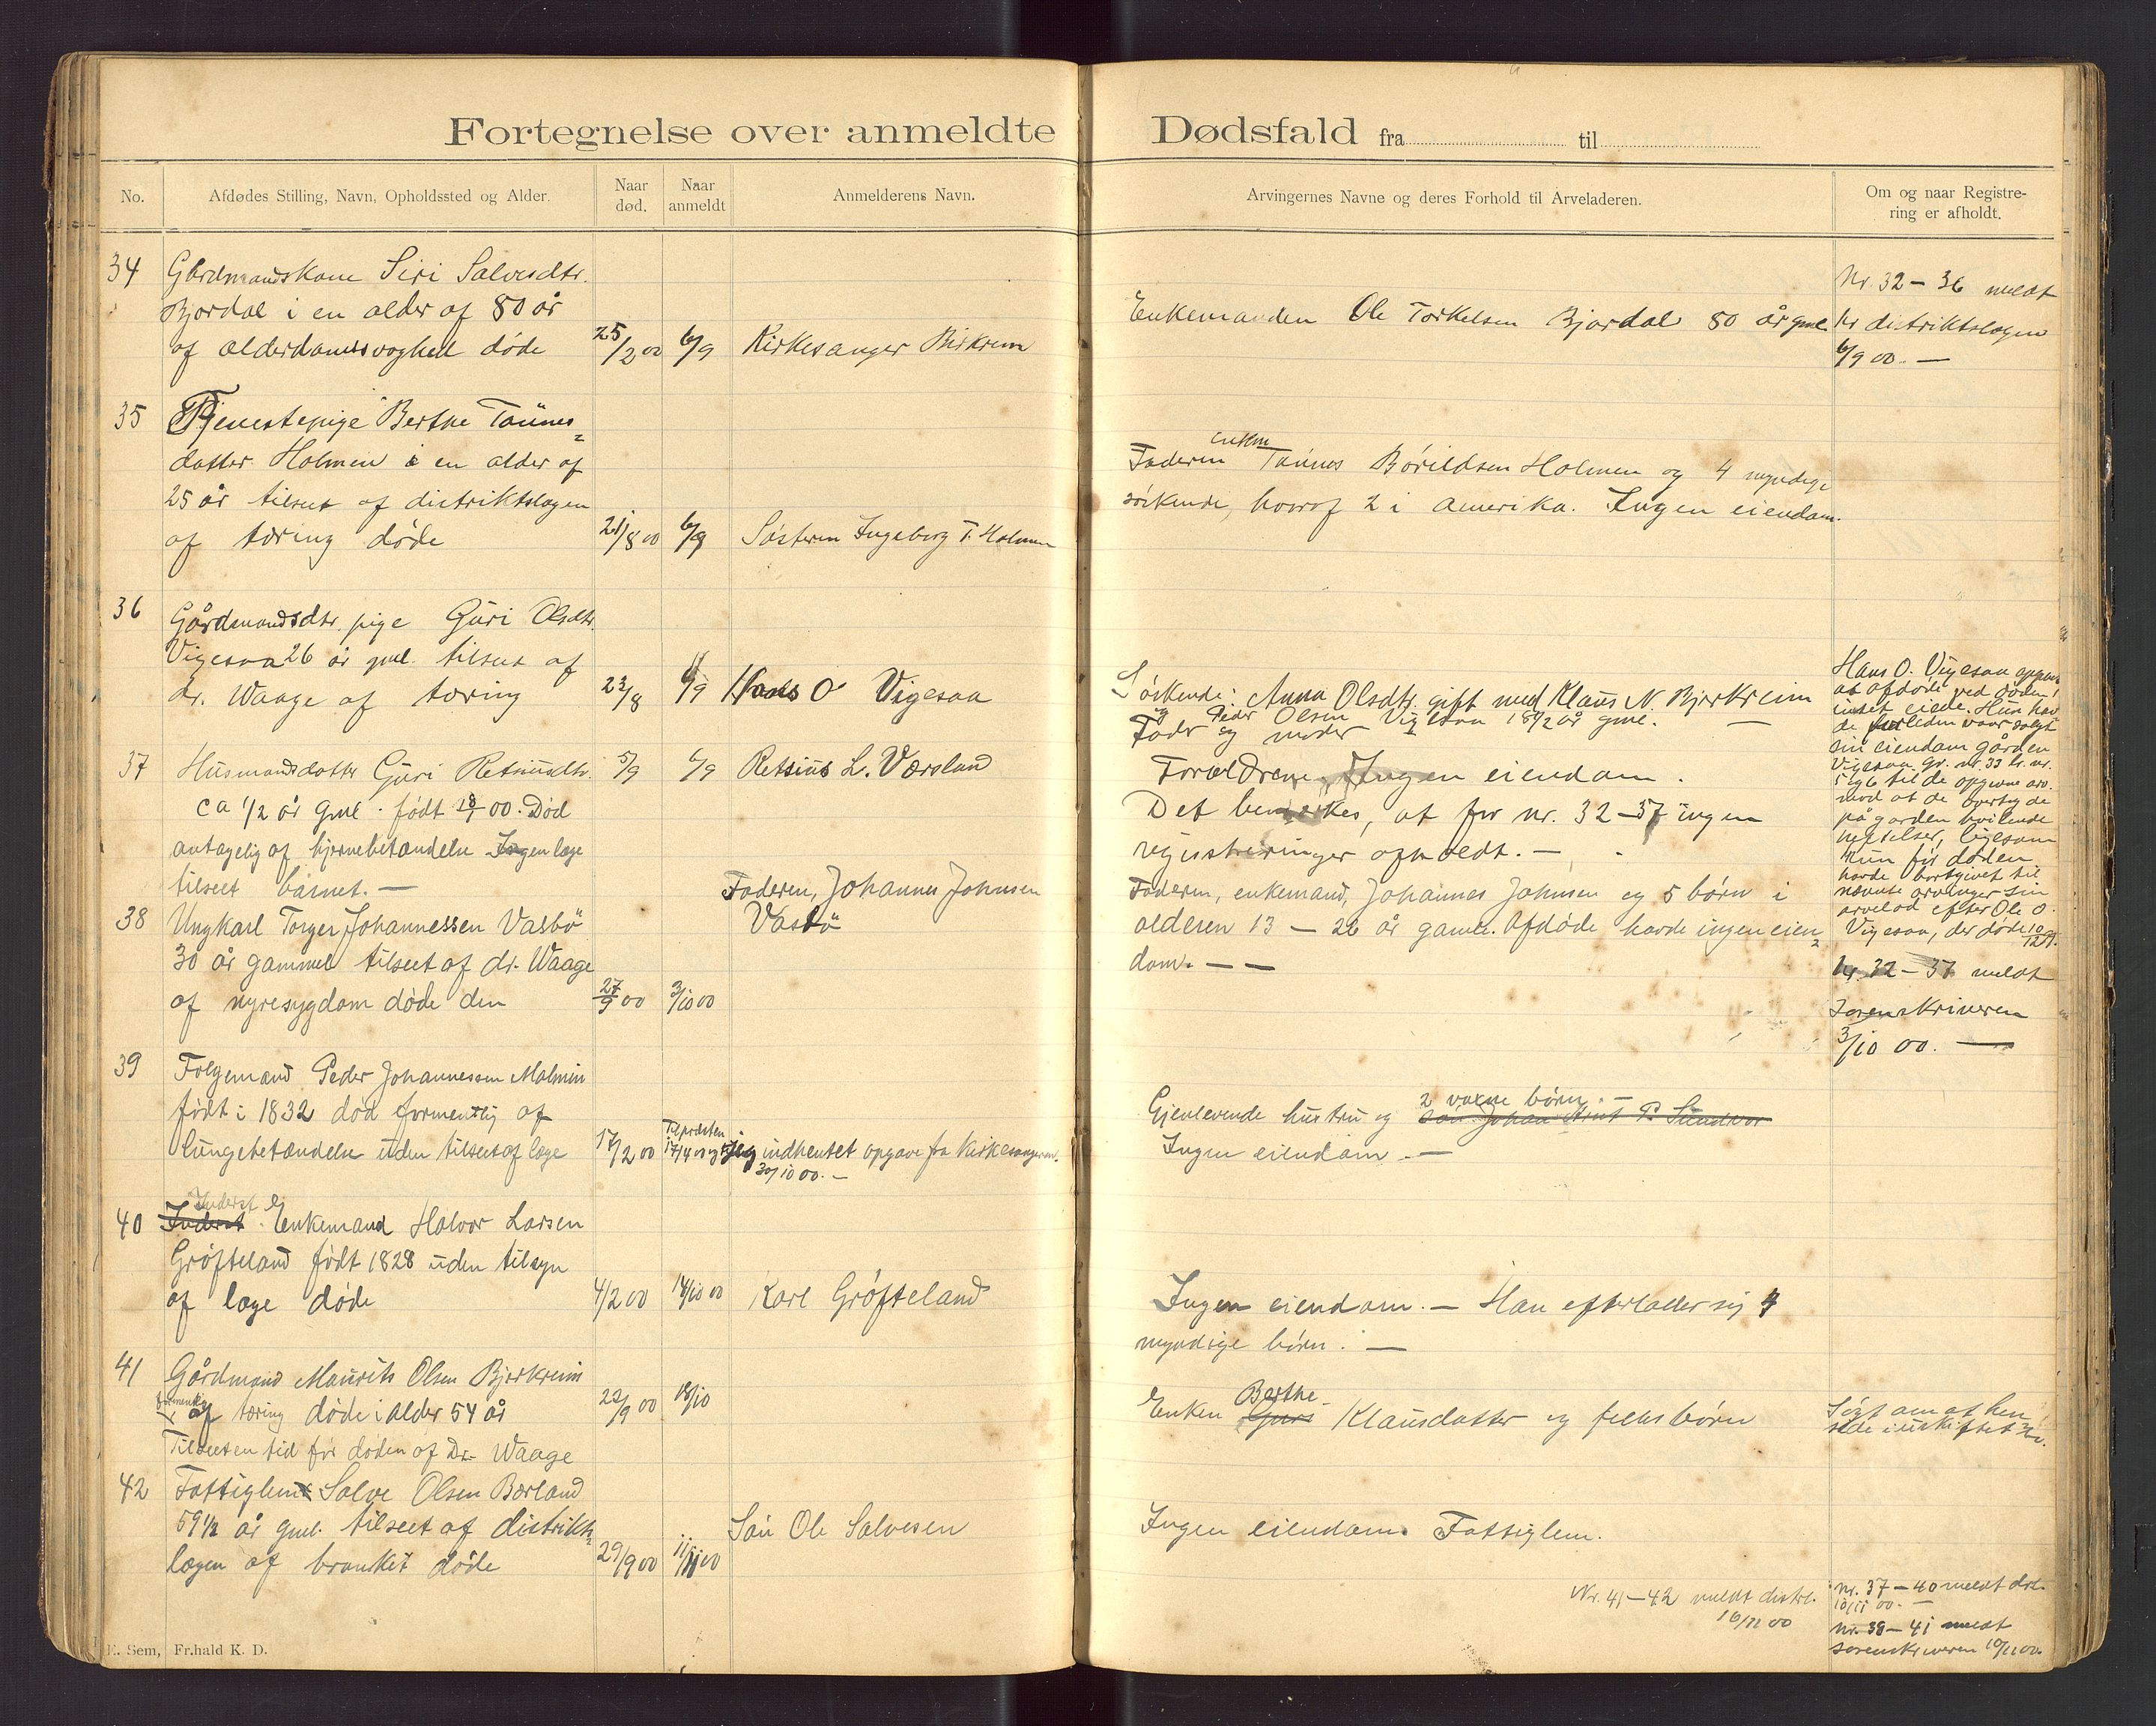 Fortegnelse over anmeldte Dødsfald fra til
No. Afdødes Stilling, Navn, Opholdssted og Alder. Naar død. Naar anmeldt Anmelderens Navn. Arvingernes Navne og deres Forhold til Arveladeren. Om og naar Registrering er afholdt.
34 Gårdmandskone Siri Salvesdtr.
Bjordal i en alder af 80 år
af alderdomssvaghed døde 25/2 00 6/9 Kirkesanger Birkrem
Enkemanden Ole Torkelsen Bjordal 80 år gml.
Nr. 32 – 36 meldt
hr distriktslægen
6/9 00. —
35 Tjenestepige Berthe Tønnes=
datter Holmen i en alder af
25 år tilseet af distriktslægen
af tæring døde 21/8 00 6/9 Søsteren Ingeborg T. Holmen
enkm
Faderen Tønnes Børildsen Holmen og 4 myndige
søskende, hvoraf 2 i Amerika. Ingen eiendom.
36 Gårdmandsdtr. pige Guri Olsdtr.
Vigesaa 26 år gml. tilseet af
dr. Waage af tæring 23/8 6/9 Hans O Vigesaa
Søskende: Anna Olsdtr. gift med Klaus N. Bjerkreim
og Peder Olsen Vigesaa 18 1/2 år gml. —
Fader og moder
Hans O. Vigesaa opgav
at afdøde ved døden
intet eiede. Hun hav
de forleden vaar solgt
sin eiendom gården
Vigesaa gr. nr. 33 br. nr.
5 og 6 til de opgivne arv.
mod at de overtog de
på gården hvilende
heftelser, ligesom
hun før døden
havde bortgivet til
nævnte arvinger sin
arvelod efter Ole O.
Vigesaa, der døde 10/12 99.
37 Husmandsdatter Guri Retsiusdtr.
ca 1/2 år gml. født 00. Død
antagelig af hjernebetændelse Ingen læge
tilseet barnet. —
5/9 6/9 Retsius L.Værsland
Forældrene. Ingen eiendom.
Det bemærkes, at for nr. 32 – 37 ingen
registreringer afholdt. —
38 Ungkarl Torger Johannessen Vasbø
30 år gammel tilseet af dr. Waage
af nyresygdom døde den 27/9 00 3/10 00
Faderen, Johannes Johnsen
Vasbø
Faderen, enkemand, Johannes Johnsen og 5 børn i
alderen 13 – 26 år gamle. Afdøde havde ingen eien=
dom. — —
Nr. 32 – 37 meldt
Sorenskriveren
3/10 00. —
39 Følgemand Peder Johannessen Malmin
født i 1832 død formentlig af
lungebetændelse uden tilseet af læge 17/2 00
Til præsten
17/4 00 og Jeg indhentet opgave fra kirkesangeren.
30/10 00. —
2 voxne børn. —
Gjenlevende hustru og søn Johan
Ingen eiendom. —
Inderst
40 Inderst Enkemand Halvor Larsen
Grøfteland født 1828 uden tilsyn
af læge døde 4/2 00 14/10 00 Karl Grøfteland
Ingen eiendom. — Han efterlader sig 4
myndige børn. —
41 Gårdmand Maurits Olsen Bjerkreim
formentlig af tæring døde i alder 54 år 22/9 00 18/10
Tilseet en tid før døden af Dr. Waage
Berthe
Enken Guri Klausdatter og fælles børn
Søgt om at hen
sidde i uskiftet
42 Fattiglem Salve Olsen Bærland
59 1/2 år gml. tilseet af distrikts=
lægen af døde 29/9 00 11/11 00
Søn Ole Salvesen
Ingen eiendom. Fattiglem.
Nr. 41 – 42 meldt distrl.
16/11 00
Nr. 37 – 40 meldt dstl.
10/11 00. —
Nr. 38 – 41 meldt
sorenskriveren 10/11 00.
E. Sem, Fr.hald K. D.